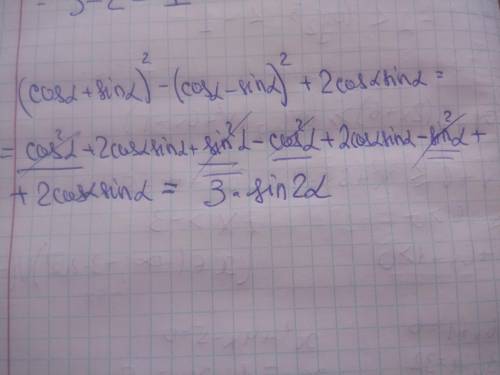 (cosα + sinα)² - (cosα - sinα)² + 2cosα sinα =
= cos²α + 2cosα sinα + sin²α - cos²α + 2cosα sinα - sin²α +
+ 2cosα sinα = 3 · sin2α